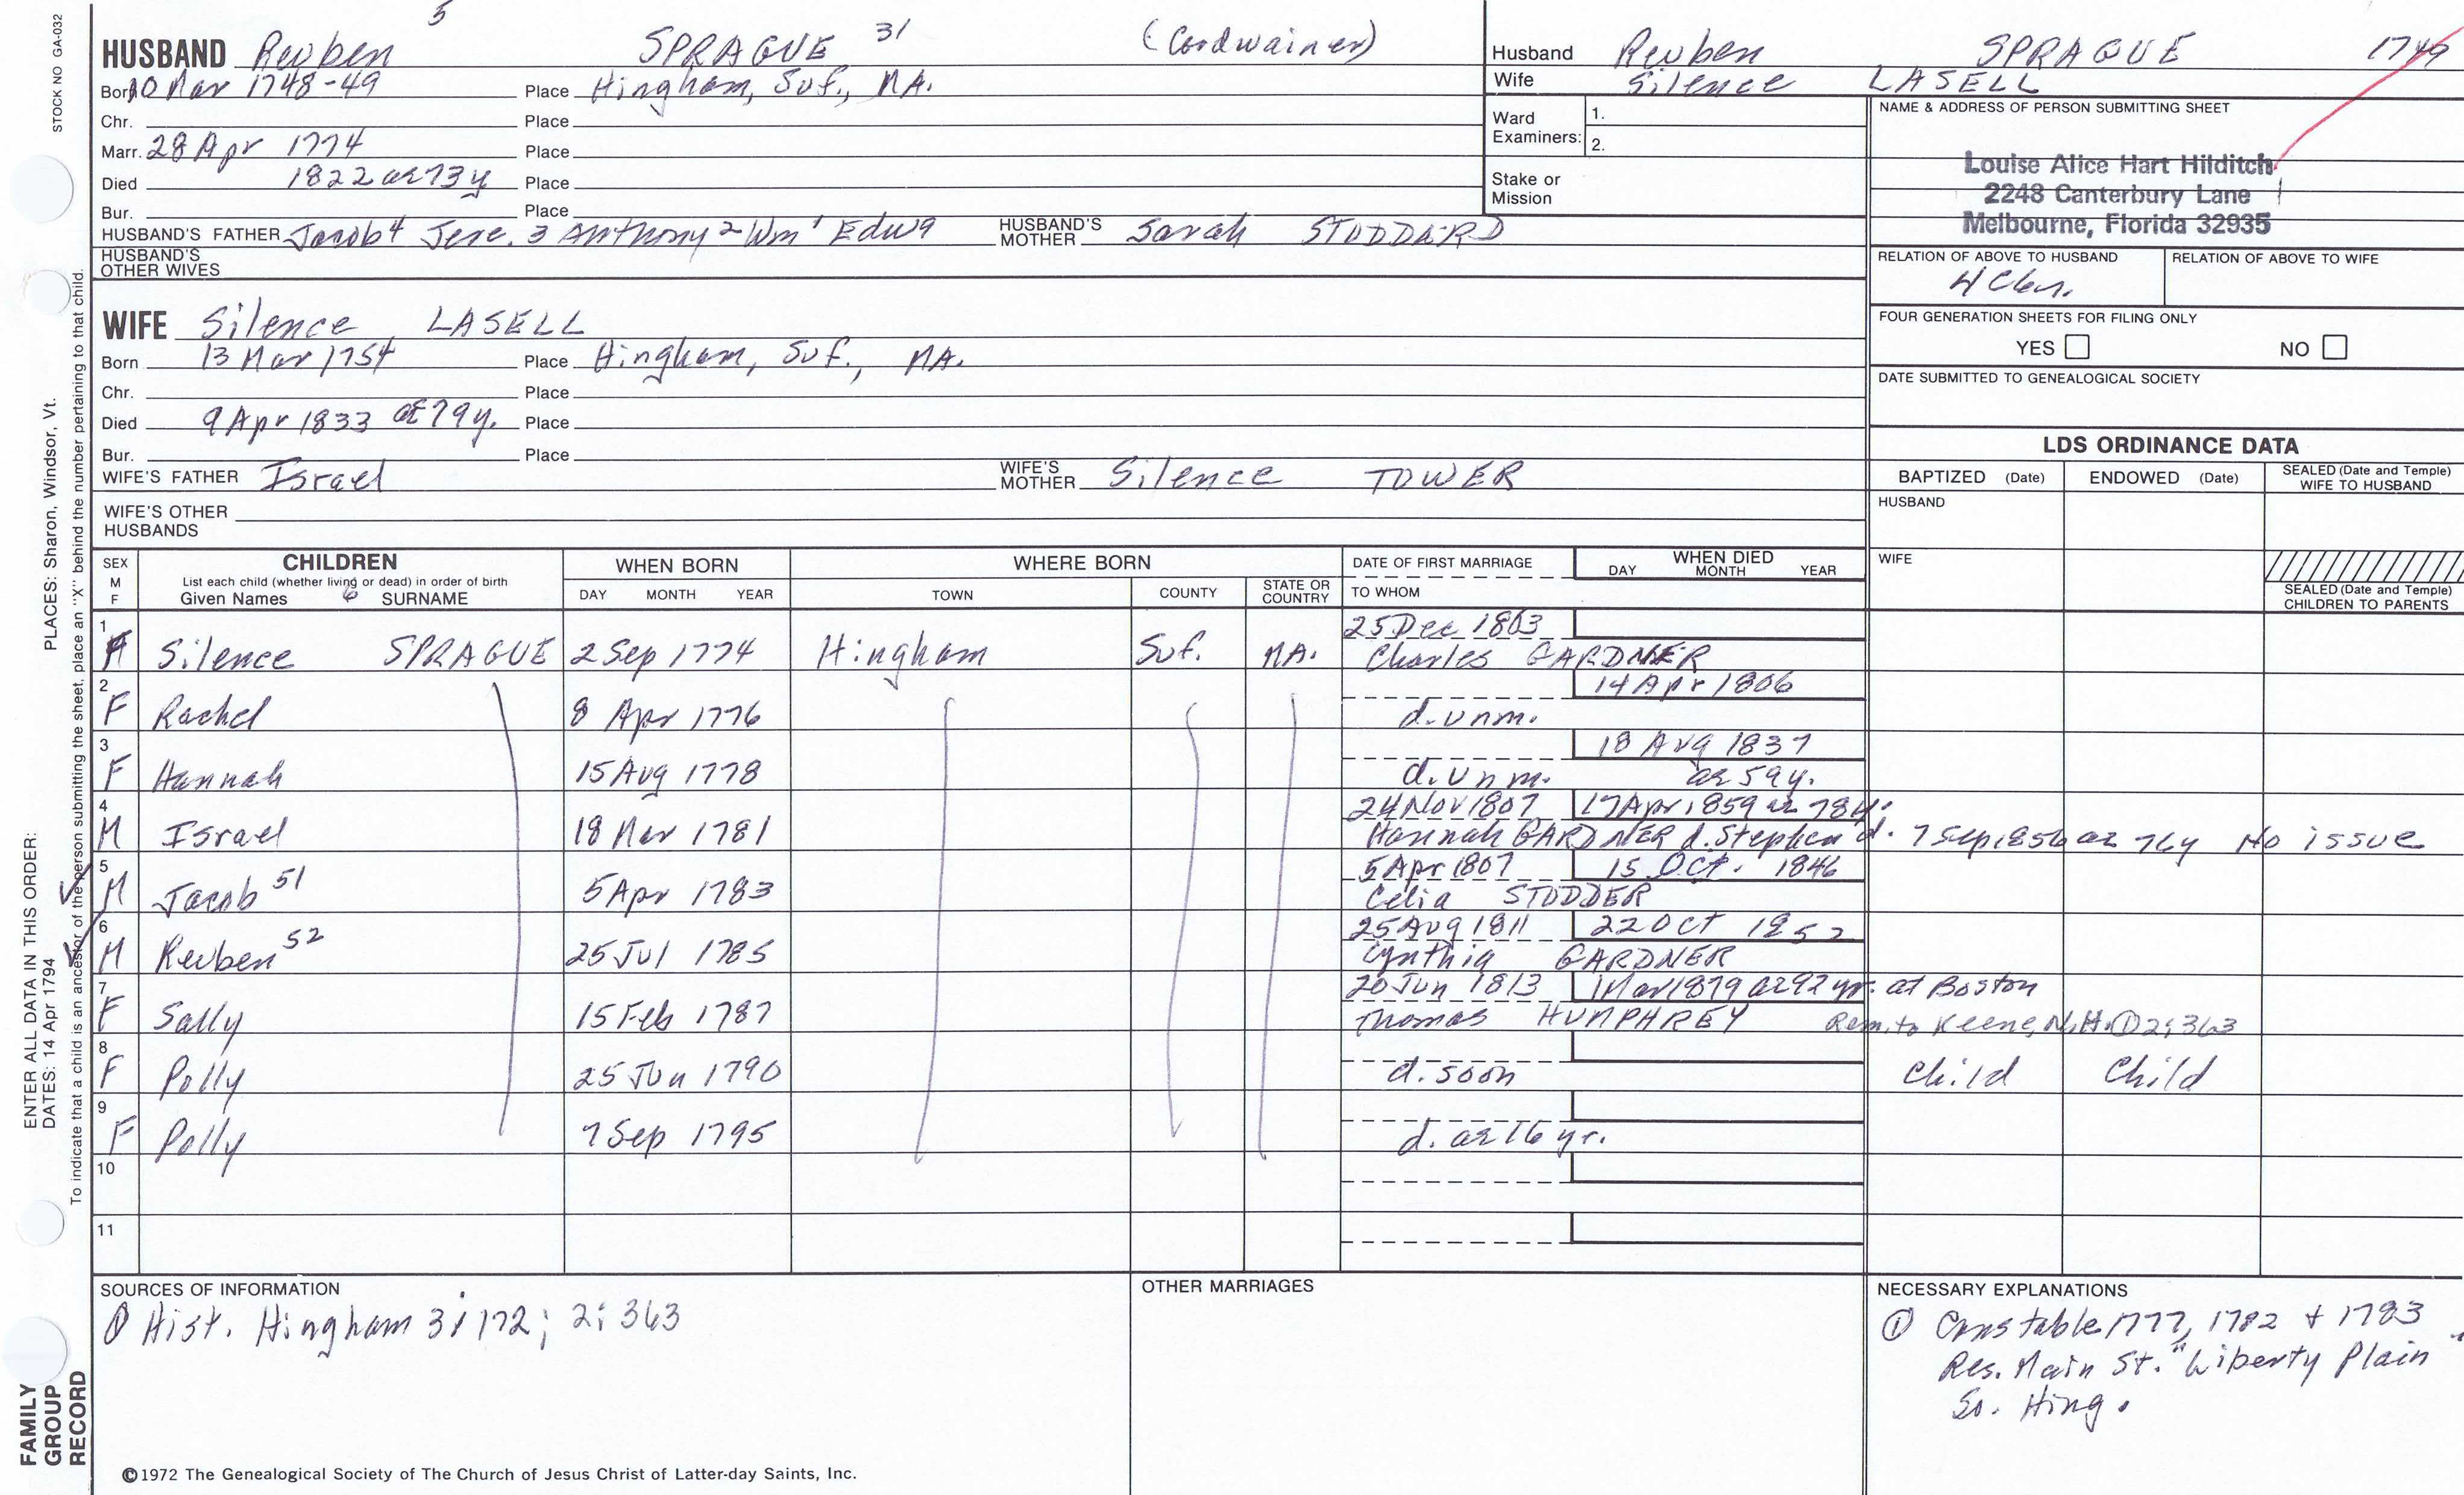 STOCK NO GA-032
HUSBAND Reuben 5 SPRAGUE 31 (Cordwainer)
Born 10 Mar 1748-49 Place Hingham, Suf., MA.
Chr. Place
Marr. 28 Apr 1774 Place
Died 1822 ae 73y Place
Bur. Place
HUSBAND'S FATHER Jacob4 Jere. 3 Anthony 2 Wm 1 Edwd HUSBAND'S MOTHER Sarah STODDARD
HUSBAND'S OTHER WIVES
WIFE Silence LASELL
Born 13 Mar 1754 Place Hingham, Suf., MA.
Chr. Place
Died 9 Apr 1833 ae 79y. Place
Bur. Place
WIFE'S FATHER Israel WIFE'S MOTHER Silence TOWER
WIFE'S OTHER HUSBANDS
Husband Reuben SPRAGUE 1749
Wife Silence LASELL
Ward Examiners: 1.
2.
Stake or Mission
NAME & ADDRESS OF PERSON SUBMITTING SHEET
Louise Alice Hart Hilditch
2248 Canterbury Lane
Melbourne, Florida 32935
RELATION OF ABOVE TO HUSBAND RELATION OF ABOVE TO WIFE
FOUR GENERATION SHEETS FOR FILING ONLY
YES NO
DATE SUBMITTED TO GENEALOGICAL SOCIETY
LDS ORDINANCE DATA
BAPTIZED (Date) ENDOWED (Date) SEALED (Date and Temple) WIFE TO HUSBAND
HUSBAND
WIFE
SEALED (Date and Temple) CHILDREN TO PARENTS
SEX M F CHILDREN WHEN BORN WHERE BORN DATE OF FIRST MARRIAGE WHEN DIED
List each child (whether living or dead) in order of birth
Given Names 6 SURNAME DAY MONTH YEAR TOWN COUNTY STATE OR COUNTRY TO WHOM DAY MONTH YEAR
1 25 Dec 1803
F Silence SPRAGUE 2 Sep 1774 Hingham Suf. MA. Charles GARDNER
2 14 Apr 1806
F Rachel 8 Apr 1776 d. unm.
3 18 Aug 1837
F Hannah 15 Aug 1778 d. unm. ae 59y.
4 24 Nov 1807 17 Apr 1859 ae 78y.
M Israel 18 Mar 1781 Hannah GARDNER d. Stephen d. 7 Sep 1856 ae 76y No issue
5 5 Apr 1807 15 Oct. 1846
M Jacob 51 5 Apr 1783 Celia STODDER
6 25 Aug 1811 22 Oct 1852
M Reuben 52 25 Jul 1785 Cynthia GARDNER
7 20 Jun 1813 1 Mar 1879 ae 92 yr. at Boston
F Sally 15 Feb 1787 Thomas HUMPHREY Rem. to Keene, N.H. ① 2:363
8
F Polly 25 Jun 1790 d. soon Child Child
9
F Polly 7 Sep 1795 d. ae 16 yr.
10
11
SOURCES OF INFORMATION
① Hist. Hingham 3:172; 2:363
OTHER MARRIAGES
NECESSARY EXPLANATIONS
① Constable 1777, 1782 + 1783
Res. Main St. "Liberty Plain
So. Hing.
©1972 The Genealogical Society of The Church of Jesus Christ of Latter-day Saints, Inc.
FAMILY GROUP RECORD
ENTER ALL DATA IN THIS ORDER:
DATES: 14 Apr 1794 PLACES: Sharon, Windsor, Vt.
To indicate that a child is an ancestor of the person submitting the sheet, place an "X" behind the number pertaining to that child.